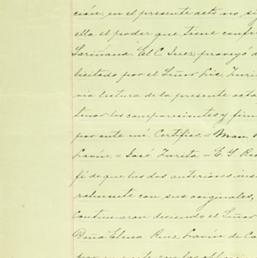 ción, en el presente acto no, su
ella el poder que tiene confer
Sariñana. El C. Juez, proveyó d
licitado por el Señor Lic. Zuri
via lectura de la presente acta
tenor los comparecientes y firm
por ante mí. Certifico = Man
José Zurita = E. G.
fé de que los dos anteriores inse
ralmente con sus originales,
continuaron diciendo el Señor
Peña Elena Ruiz